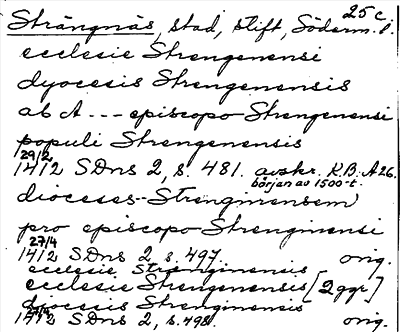 25 c.
Strängnäs, stad, stift, Söderm. l.
ecclesie Strengenensi
dyocesis Strengenensis
ab A --- episcopo Strengenensi
populi Strengenensis
29/2
1412 SDns 2, s. 481. avskr. K.B. A 26.
början av 1500-t.
dioceses -- Strenginensem
pro episcopo Strenginensi
27/4
1412 SDns 2, s. 497. orig.
ecclesie Strenginensis
ecclesie Strengenensis [2 ggr]
diocesis Strenginensis
1412 SDns 2, s. 498. orig.